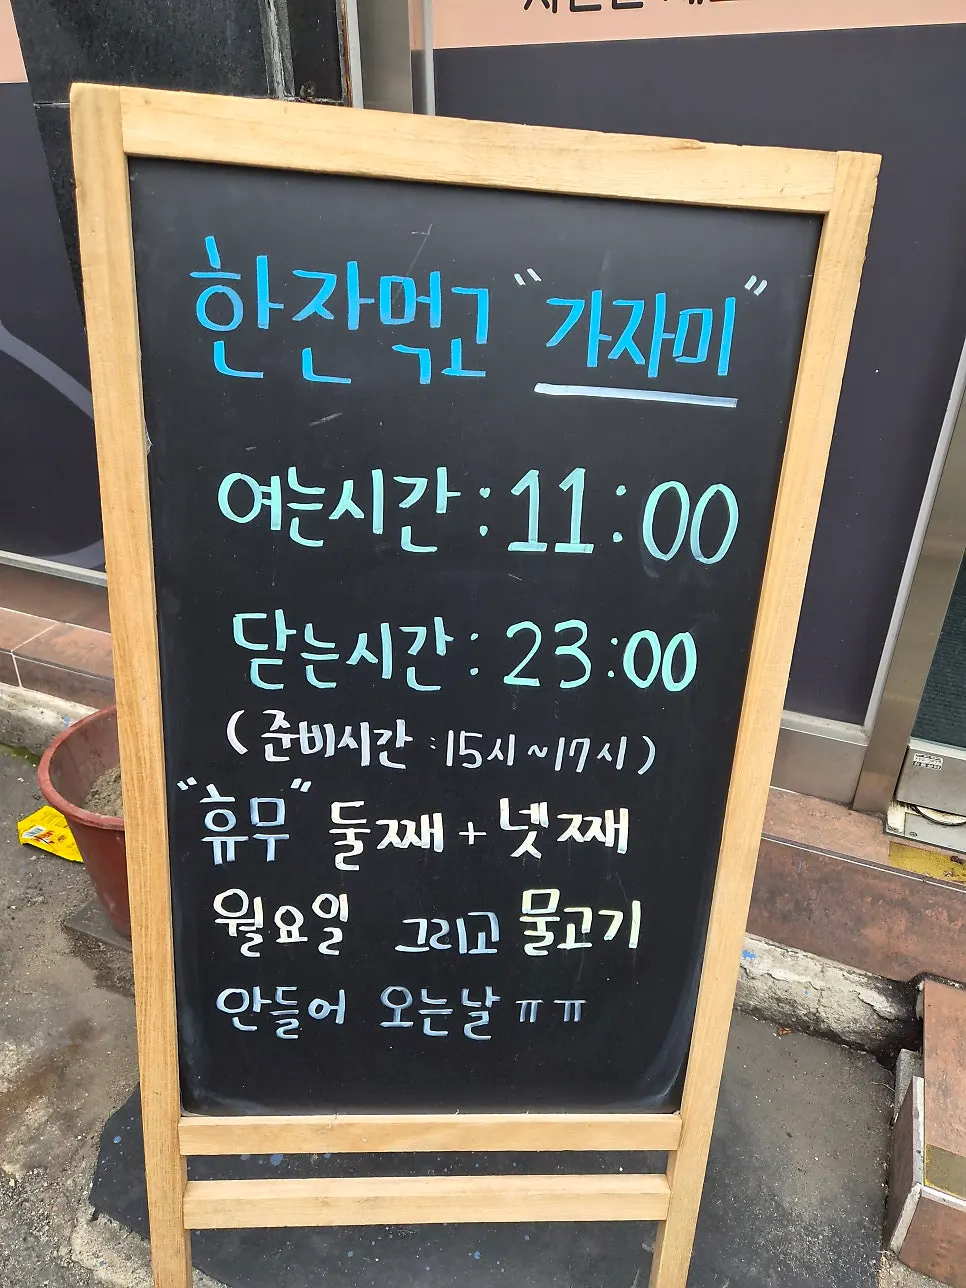 한잔먹고 "가자미"
여는시간 : 11:00
닫는시간 : 23:00
( 준비시간 : 15시 ~ 17시 )
"휴무" 둘째 + 넷째
월요일 그리고 물고기
안들어 오는날 ㅠㅠ